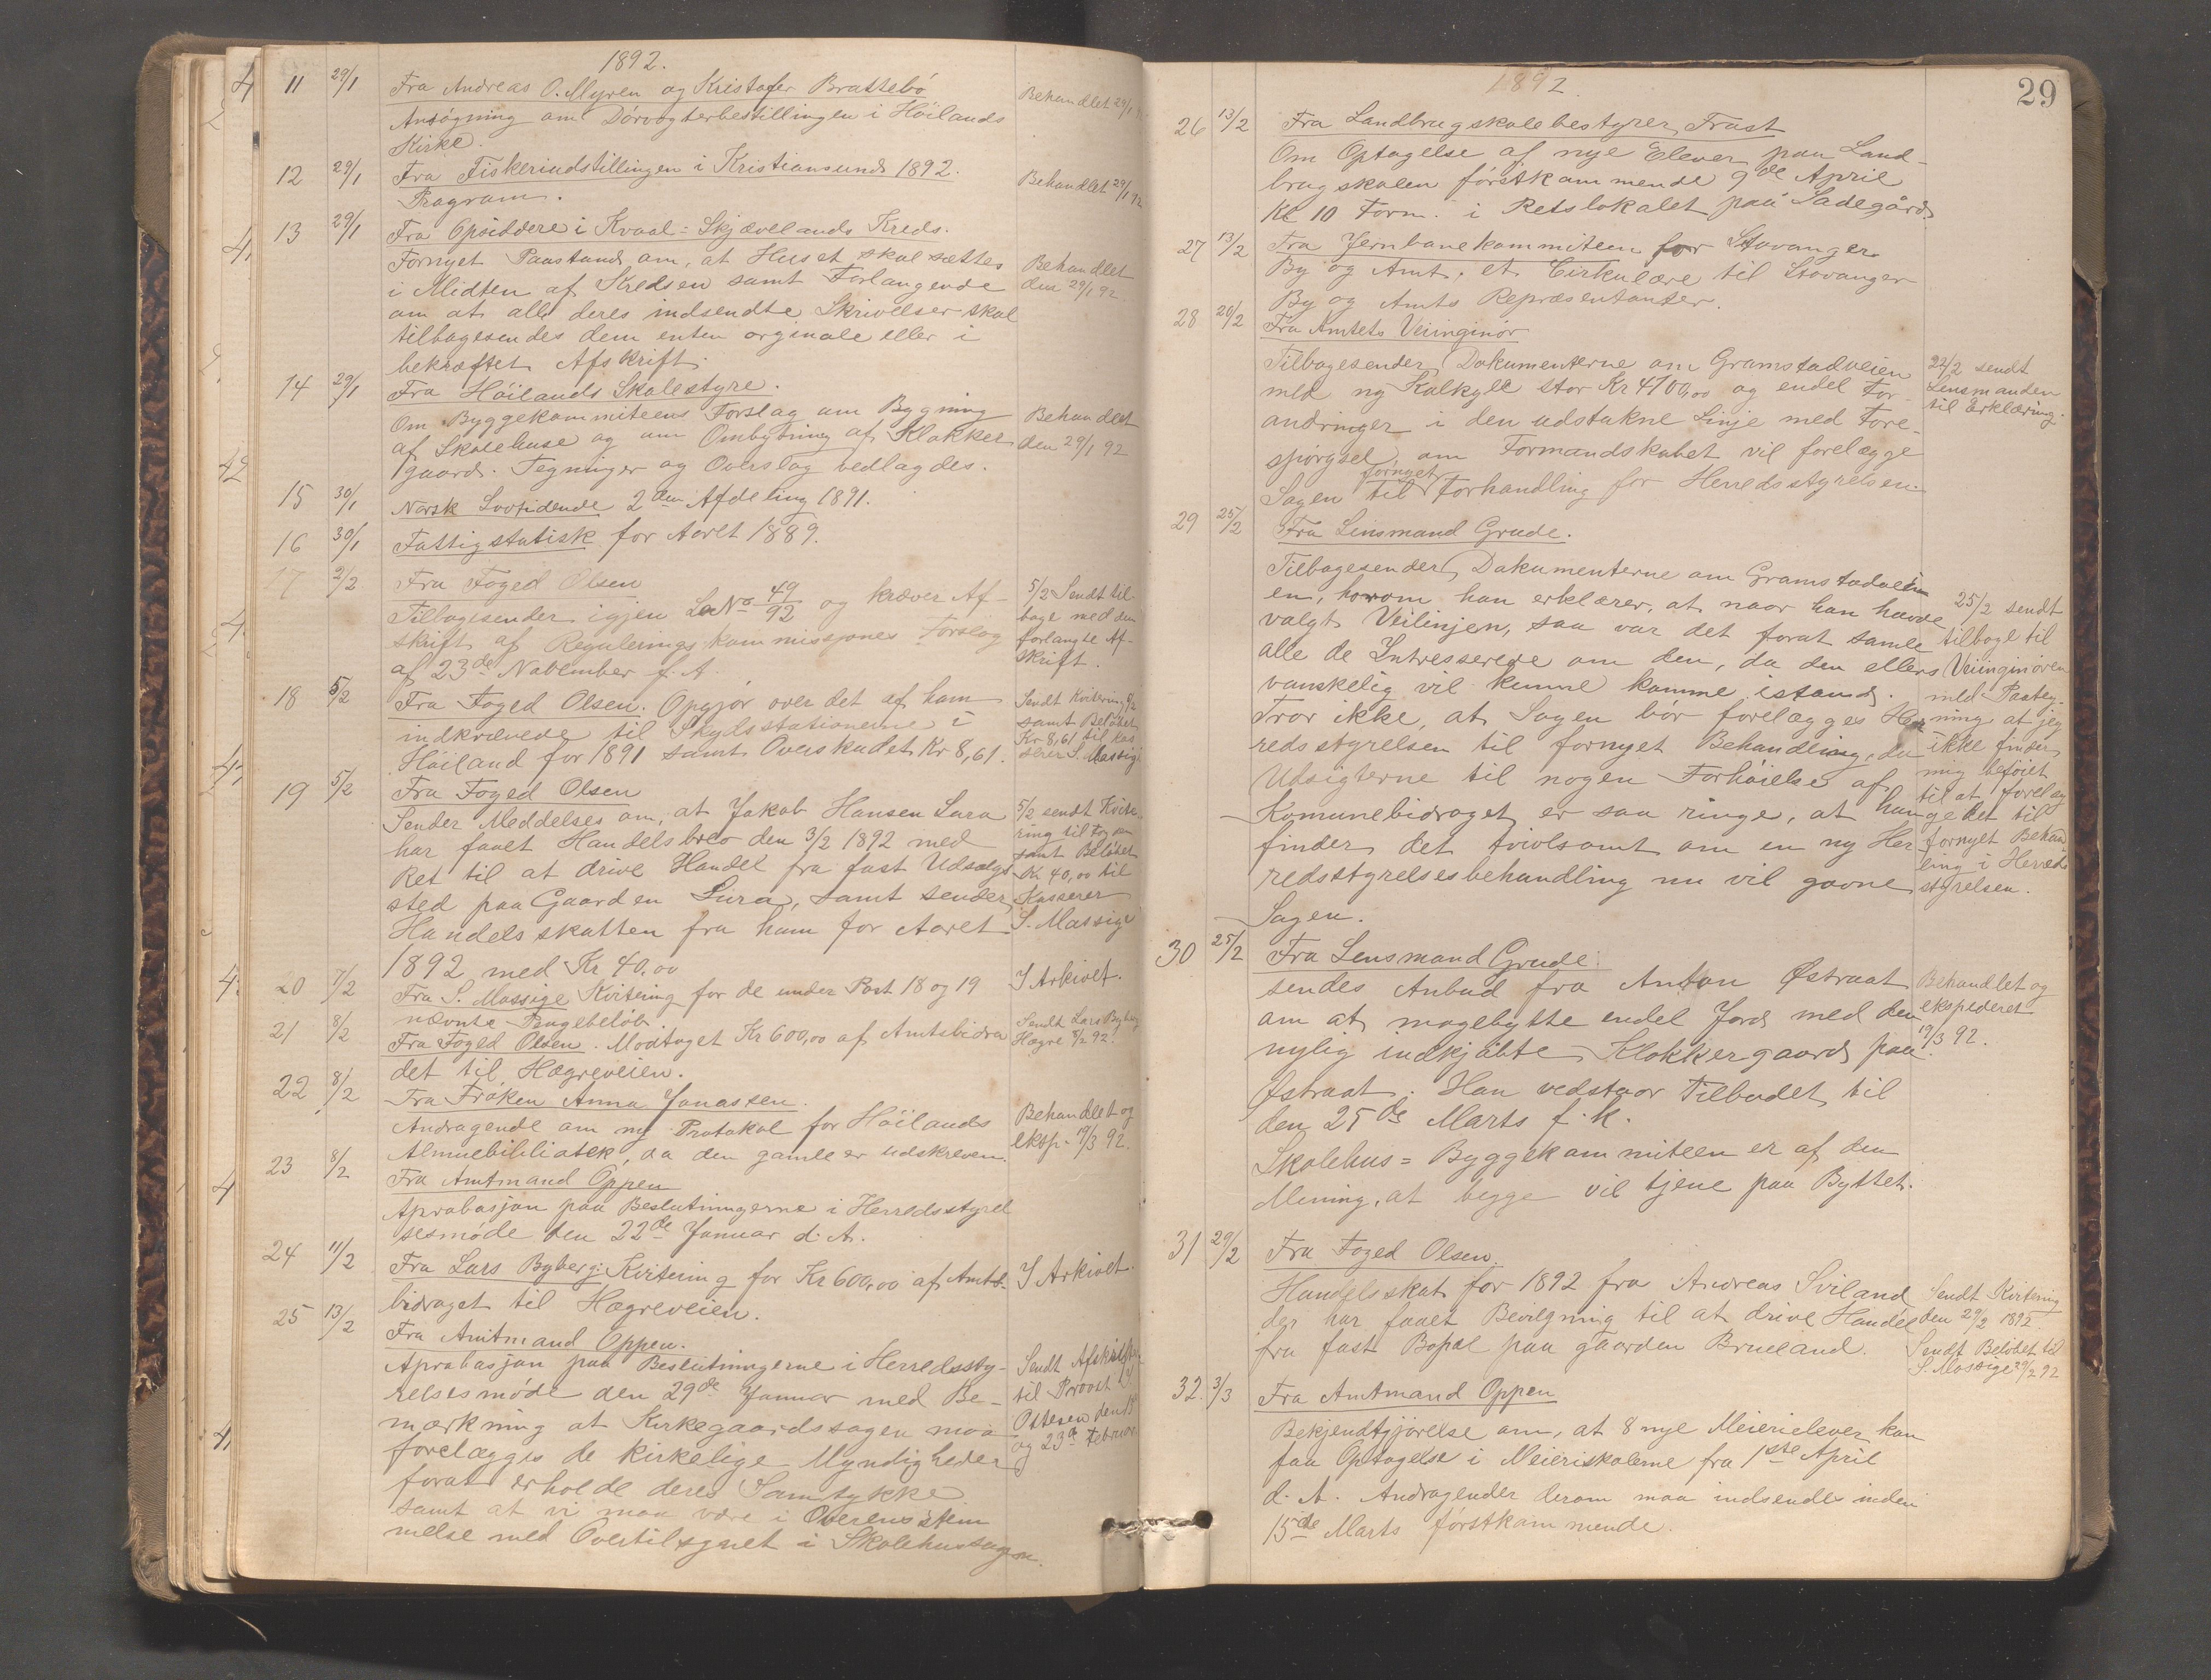 1892.
11 29/1 Fra Andreas O. Myren og Kristofer Brattebö Behandlet 29/1
Ansögning om Dörvogterbestillingen i Höilands
Kirke.
12 29/1 Fra Fiskeriudstillingen i Kristiansund 1892. Behandlet 29/1 92
Program.
13 29/1 Fra Opsiddere i Kvaal=Skjævelands Kreds.
Fornyet Paastand om, at Huset skal sættes Behandlet
i Midten af Kredsen samt Forlangende den 29/1 92.
om at alle deres indsendte Skrivelser skal
tilbagesendes dem enten orginale eller i
bekræftet Afskrift.
14 29/1 Fra Höilands Skolestyre.
Om Byggekommiteens Forslag om Bygning Behandlet
af Skolehuse og om Ombytning af Klokker den 29/1 92
gaard. Tegninger og Overslag vedlagdes.
15 30/1 Norsk Lovtidende 2den Afdeling 1891.
16 30/1 Fattigstatisk for Aaret 1889.
17 2/2 Fra Foged Olsen 5/2 Sendt til
Tilbagesender igjen L No 49/92 og kræver Af- bage med den
skrift af Reguleringskommissjones Forslag forlangte Af-
af 23de November f. A. skrift.
18 5/2 Fra Foged Olsen. Opgjör over det af ham Sendt Kvitering 6/2
indkrævede til Skydsstationerne i samt Belöbet
Höiland for 1891 samt Overskudet Kr 8,61. Kr 8,61 til Kas
serer S. Massige
19 5/2 Fra Foged Olsen
Sender Meddelses om, at Jakob Hansen Lura 5/2 sendt Kvite
har faaet Handelsbrev den 3/2 1892 med ring til Fogden
Ret til at drive Handel fra fast Udsalgs samt Belöbet
sted paa Gaarden Lura, samt sender Kr 40,00 til
Handelsskatten fra ham for Aaret Kasserer
1892 med Kr 40,00 S. Massige
20 7/2 Fra S. Massige Kvitering for de under Post 18 og 19 I Arkivet.
nævnte Pengebelöb.
21 8/2 Fra Foged Olsen. Modtaget Kr 600,00 af Amtsbidra Sendt Lars Byberg
det til Hægreveien. Hægre 8/2 92.
22 8/2 Fra Fröken Anna Jonassen.
Andragende om ny Protokol for Höilands Behandlet og
Almuebibliotek, da den gamle er udskreven. eksp. 19/3 92.
23 8/2 Fra Amtmand Oppen
Aprobasjon paa Beslutningerne i Herredsstyrel
sesmöde den 22de Januar d. A.
24 11/2 Fra Lars Byberg: Kvitering for Kr 600,00 af Amts- I Arkivet.
bidraget til Hægreveien.
25 13/2 Fra Amtmand Oppen.
Aprobasjon paa Beslutningerne i Herredssty- Sendt Afskrift
relsesmöde den 29de Januar med Be- til Provst
mærkning at Kirkegaardssagen maa Ottesen den 15
forelægges de kirkelige Myndigheder og 23de Februar
forat erholde deres Samtykke
samt at vi maa være i Overensstem
melse med Overtilsynet i Skolehussagen.
29
1892.
26 13/2 Fra Landbrugskolebestyrer Frast
Om Optagelse af nye Elever paa Land-
brugskolen förstkommende 9de April
Kl 10 Form. i Retslokalet paa Sadegård.
27 13/2 Fra Jernbanekommiteen for Stavanger
By og Amt, et Cirkulære til Stavanger
By og Amts Repræsentanter.
28 20/2 Fra Amtets Veiinginör
Tilbagesender Dokumenterne om Gramstadveien 22/2 sendt
med ny Kalkyle stor Kr 4700,00 og endel For- Lensmanden
andringer i den udstukne Linje med Fore- til Erklæring.
spörgsel om Formandskabet vil forelægge
Sagen til fornyet Forhandling for Herredsstyrelsen.
29 25/2 Fra Lensmand Grude.
Tilbagesender Dokumenterne om Gramstadveien
en, hvorom han erklærer, at naar han havde 25/2 sendt
valgt Veilinjen, saa var det forat samle tilbage til
alle de Intresserede om den, da den ellers Veiinginören
vanskelig vil kunne komme istand. med Paateg-
Tror ikke, at Sagen bör forelægges Her ning at jeg
redsstyrelsen til fornyet Behandling, da ikke finder
Udsigterne til nogen Forhöielse af mig beföiet
Komunebidraget er saa ringe, at han til at forelæg
finder det tvivlsomt om en ny Her ge det til
redsstyrelsesbehandling nu vil gavne fornyet Behand
Sagen. ling i Herreds
styrelsen.
30 25/2 Fra Lensmand Grude.
sendes Anbud fra Anton Østraat Behandlet og
om at magebytte endel Jord med den ekspederet
nylig indkjöbte Klokkergaard paa 19/3 92.
Østraat. Han vedstaar Tilbudet til
den 25de Marts f. k.
Skolehus=Byggekommiteen er af den
Mening, at begge vil tjene paa Byttet.
31 29/2 Fra Foged Olsen.
Handelsskat for 1892 fra Andreas Sviland Sendt Kvitering
der har faaet Bevilgning til at drive Handel den 29/2 1892
fra fast Bopæl paa gaarden Brueland. Sendt Belöbet til
S. Massige 29/2 92
32 3/3 Fra Amtmand Oppen
Bekjendtgjörelse om, at 8 nye Meierielever kan
faa Optagelse i Meieriskolerne fra 1ste April
d. A. Andragender derom maa indsendes inden
15de Marts förstkommende.